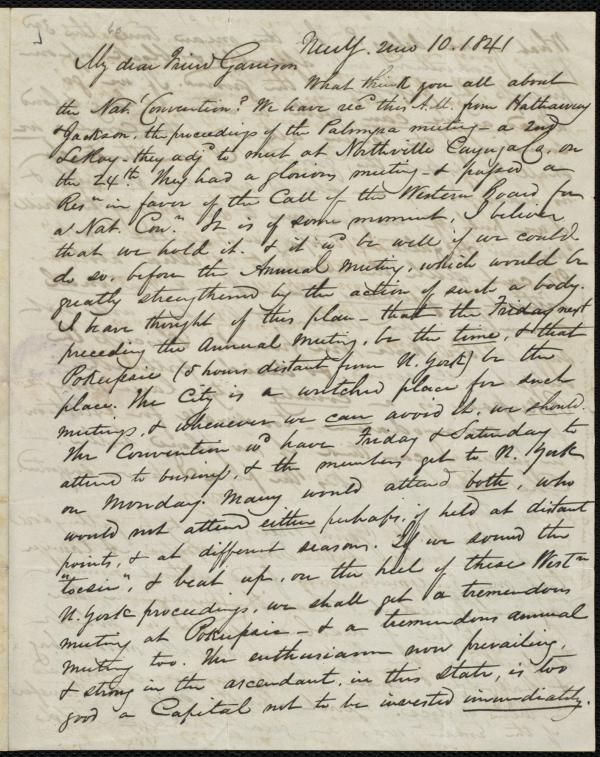 10. 1841
My dear Friend Garrison
What think you all about
the Nat. Convention? We have recd this A.M. from Hathaway
& Jackson, the proceedings of the Palmyra meeting - a 2nd
LeRoy - they adjd to meet at Northville Cayuga Co. on
the 24th. They had a glorious meeting - & passed a
Resn in favor of the Call of the Western Board for
a Nat. Conn. It is of some moment, I believe
that we hold it. & it wd be well if we could
do so, before the Annual Meeting, which would be
greatly strengthened by the action of such a body.
I have thought of this plan - that the Friday next
preceding the Annual Meeting, be the time, & that
Pokupsie (5 hours distant from N. York) be the
place. The City is a wretched place for such
meetings, & whenever we can avoid it, we should.
The Convention wd have Friday & Saturday to
attend to business, & the members get to N. York
on Monday. Many would attend both, who
would not attend either perhaps, if held at distant
points, & at different seasons. If we sound the
"tocsin", & beat up, on the heel of these Westn
N. York proceedings, we shall get a tremendous
meeting at Pokupsie - & a tremendous annual
meeting too. The enthusiasm now prevailing,
& strong in the ascendant, in this state, is too
good a Capital not to be invested immediately.